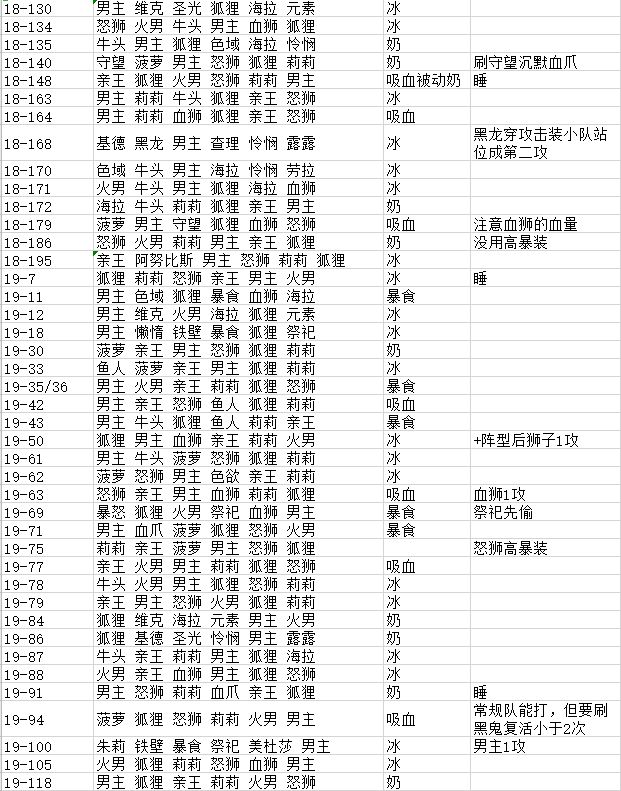 18-130 男主 维克 圣光 狐狸 海拉 元素 冰
18-134 怒狮 火男 牛头 男主 血狮 狐狸 冰
18-135 牛头 男主 狐狸 色域 海拉 怜悯 奶
18-140 守望 菠萝 男主 怒狮 狐狸 莉莉 奶 刷守望沉默血爪
18-148 亲王 狐狸 火男 怒狮 莉莉 男主 吸血被动奶 睡
18-163 男主 莉莉 牛头 狐狸 亲王 怒狮 冰
18-164 男主 莉莉 血狮 狐狸 亲王 怒狮 吸血
18-168 基德 黑龙 男主 查理 怜悯 露露 冰 黑龙穿攻击装小队站
位成第二攻
18-170 色域 牛头 男主 海拉 怜悯 劳拉 冰
18-171 火男 牛头 男主 狐狸 海拉 血狮 冰
18-172 海拉 牛头 莉莉 狐狸 亲王 男主 奶
18-179 菠萝 男主 守望 狐狸 血狮 怒狮 吸血 注意血狮的血量
18-186 怒狮 火男 莉莉 男主 亲王 狐狸 奶 没用高暴装
18-195 亲王 阿努比斯 男主 怒狮 莉莉 狐狸 冰
19-7 狐狸 莉莉 怒狮 亲王 男主 火男 冰 睡
19-11 男主 色域 狐狸 暴食 血狮 海拉 暴食
19-12 男主 维克 火男 海拉 狐狸 元素 冰
19-18 男主 懒惰 铁壁 暴食 狐狸 祭祀 冰
19-30 菠萝 亲王 男主 怒狮 狐狸 莉莉 奶
19-33 鱼人 菠萝 亲王 男主 狐狸 莉莉 冰
19-35/36 男主 火男 亲王 莉莉 狐狸 怒狮 暴食
19-42 男主 亲王 怒狮 鱼人 狐狸 莉莉 吸血
19-43 男主 牛头 狐狸 鱼人 莉莉 亲王 暴食
19-50 狐狸 男主 血狮 亲王 莉莉 火男 冰 +阵型后狮子1攻
19-61 男主 牛头 菠萝 怒狮 狐狸 莉莉 冰
19-62 菠萝 怒狮 男主 色欲 亲王 莉莉 冰
19-63 怒狮 亲王 男主 血狮 莉莉 狐狸 吸血 血狮1攻
19-69 暴怒 狐狸 火男 祭祀 血狮 男主 暴食 祭祀先偷
19-71 男主 血爪 菠萝 狐狸 怒狮 火男 暴食
19-75 莉莉 亲王 菠萝 男主 怒狮 狐狸 怒狮高暴装
19-77 亲王 火男 男主 莉莉 狐狸 怒狮 吸血
19-78 牛头 火男 男主 狐狸 怒狮 莉莉 冰
19-79 亲王 男主 怒狮 火男 狐狸 莉莉 冰
19-84 狐狸 维克 海拉 元素 男主 火男 奶
19-86 狐狸 基德 圣光 怜悯 男主 露露 奶
19-87 牛头 亲王 莉莉 男主 狐狸 海拉 冰
19-88 火男 亲王 血狮 男主 狐狸 怒狮 冰
19-91 男主 怒狮 莉莉 血爪 亲王 狐狸 奶 睡
19-94 菠萝 狐狸 怒狮 莉莉 火男 男主 吸血 常规队能打，但要刷
黑鬼复活小于2次
19-100 朱莉 铁壁 暴食 祭祀 美杜莎 男主 冰 男主1攻
19-105 火男 狐狸 莉莉 怒狮 血狮 男主 冰
19-118 男主 狐狸 亲王 莉莉 火男 怒狮 奶